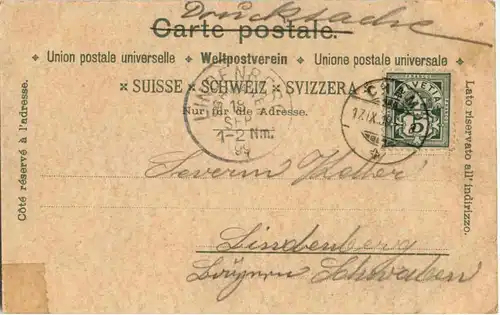 Drucksache
Carte postale.
Union postale universelle ✦ Weltpostverein ✦ Unione postale universale
SUISSE SCHWEIZ SVIZZERA
Nur für die Adresse.
Côté réservé à l'adresse.
Lato riservato all' indirizzo.
LINDENBERG
18
SEP
1-2 Nm.
CHAM
17.IX.
HELVETIA
5
Severin Keller
Lindenberg
Bayern Schwaben